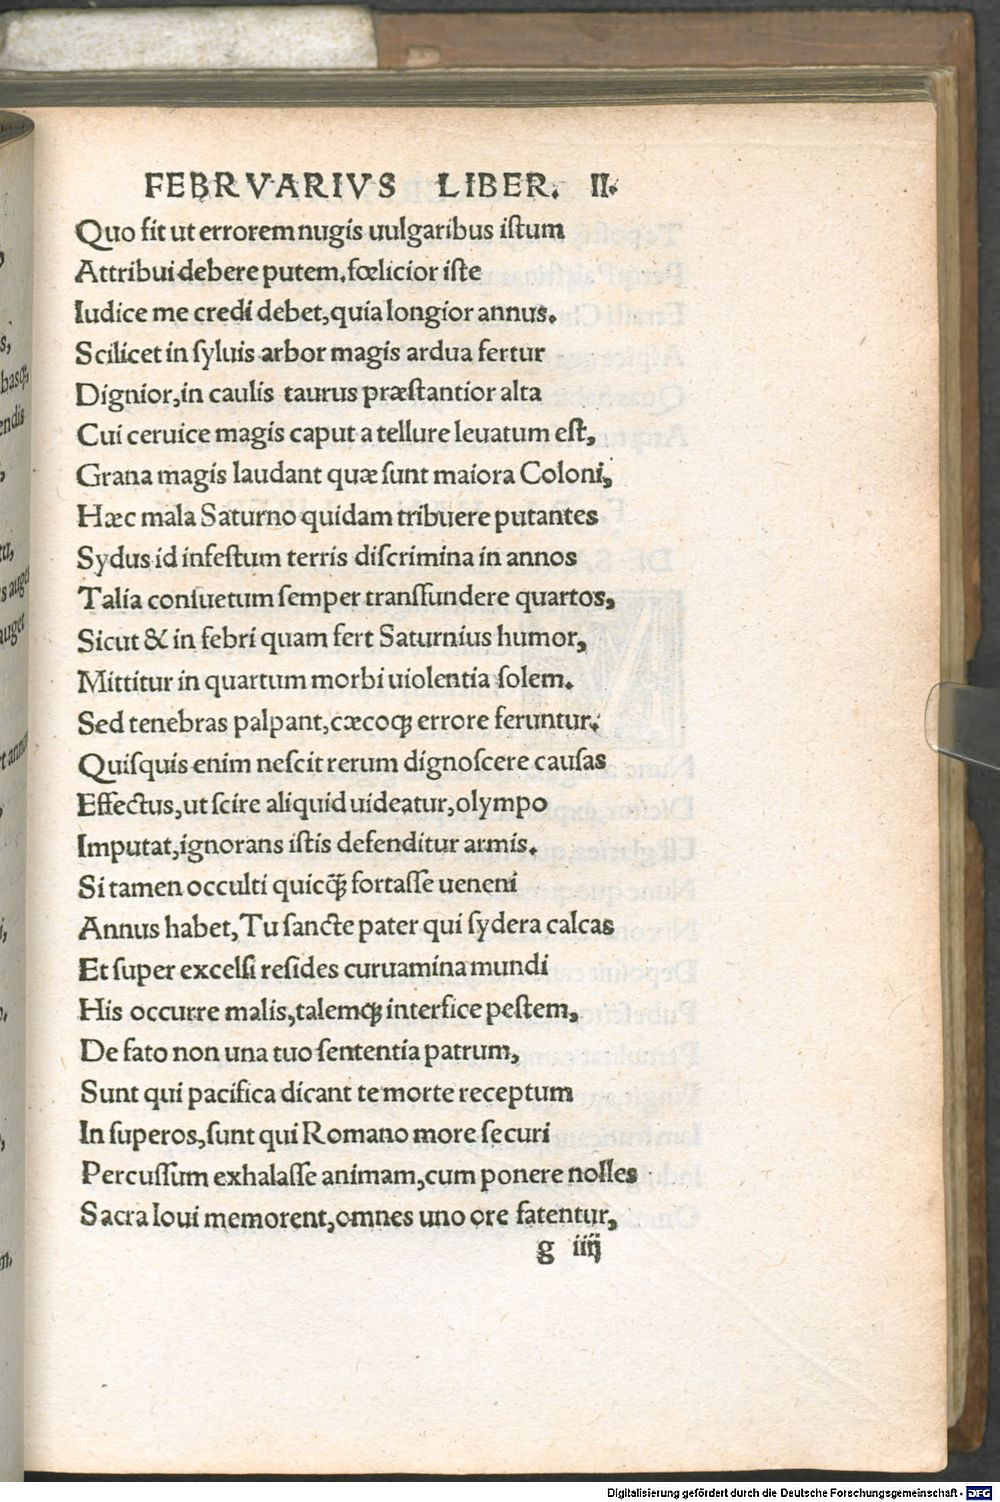 FEBRVARIVS LIBER. II.
Quo fit ut errorem nugis uulgaribus iſtum
Attribui debere putem, fœlicior iſte
Iudice me credi debet, quia longior annus.
Scilicet in ſyluis arbor magis ardua fertur
Dignior, in caulis taurus præſtantior alta
Cui ceruice magis caput a tellure leuatum eſt,
Grana magis laudant quæ ſunt maiora Coloni,
Hæc mala Saturno quidam tribuere putantes
Sydus id infeſtum terris diſcrimina in annos
Talia conſuetum ſemper tranſfundere quartos,
Sicut & in febri quam fert Saturnius humor,
Mittitur in quartum morbi uiolentia ſolem.
Sed tenebras palpant, cæcoqꝫ errore feruntur.
Quiſquis enim neſcit rerum dignoſcere cauſas
Effectus, ut ſcire aliquid uideatur, olympo
Imputat, ignorans iſtis defenditur armis.
Si tamen occulti quicq̃ꝫ fortaſſe ueneni
Annus habet, Tu ſancte pater qui ſydera calcas
Et ſuper excelſi reſides curuamina mundi
His occurre malis, talemqꝫ interfice peſtem,
De fato non una tuo ſententia patrum,
Sunt qui pacifica dicant te morte receptum
In ſuperos, ſunt qui Romano more ſecuri
Percuſſum exhalaſſe animam, cum ponere nolles
Sacra Ioui memorent, omnes uno ore fatentur,
g iiij
basqꝫ,
endis
s auget
auget
et annus
Digitalisierung gefördert durch die Deutsche Forschungsgemeinschaft - DFG